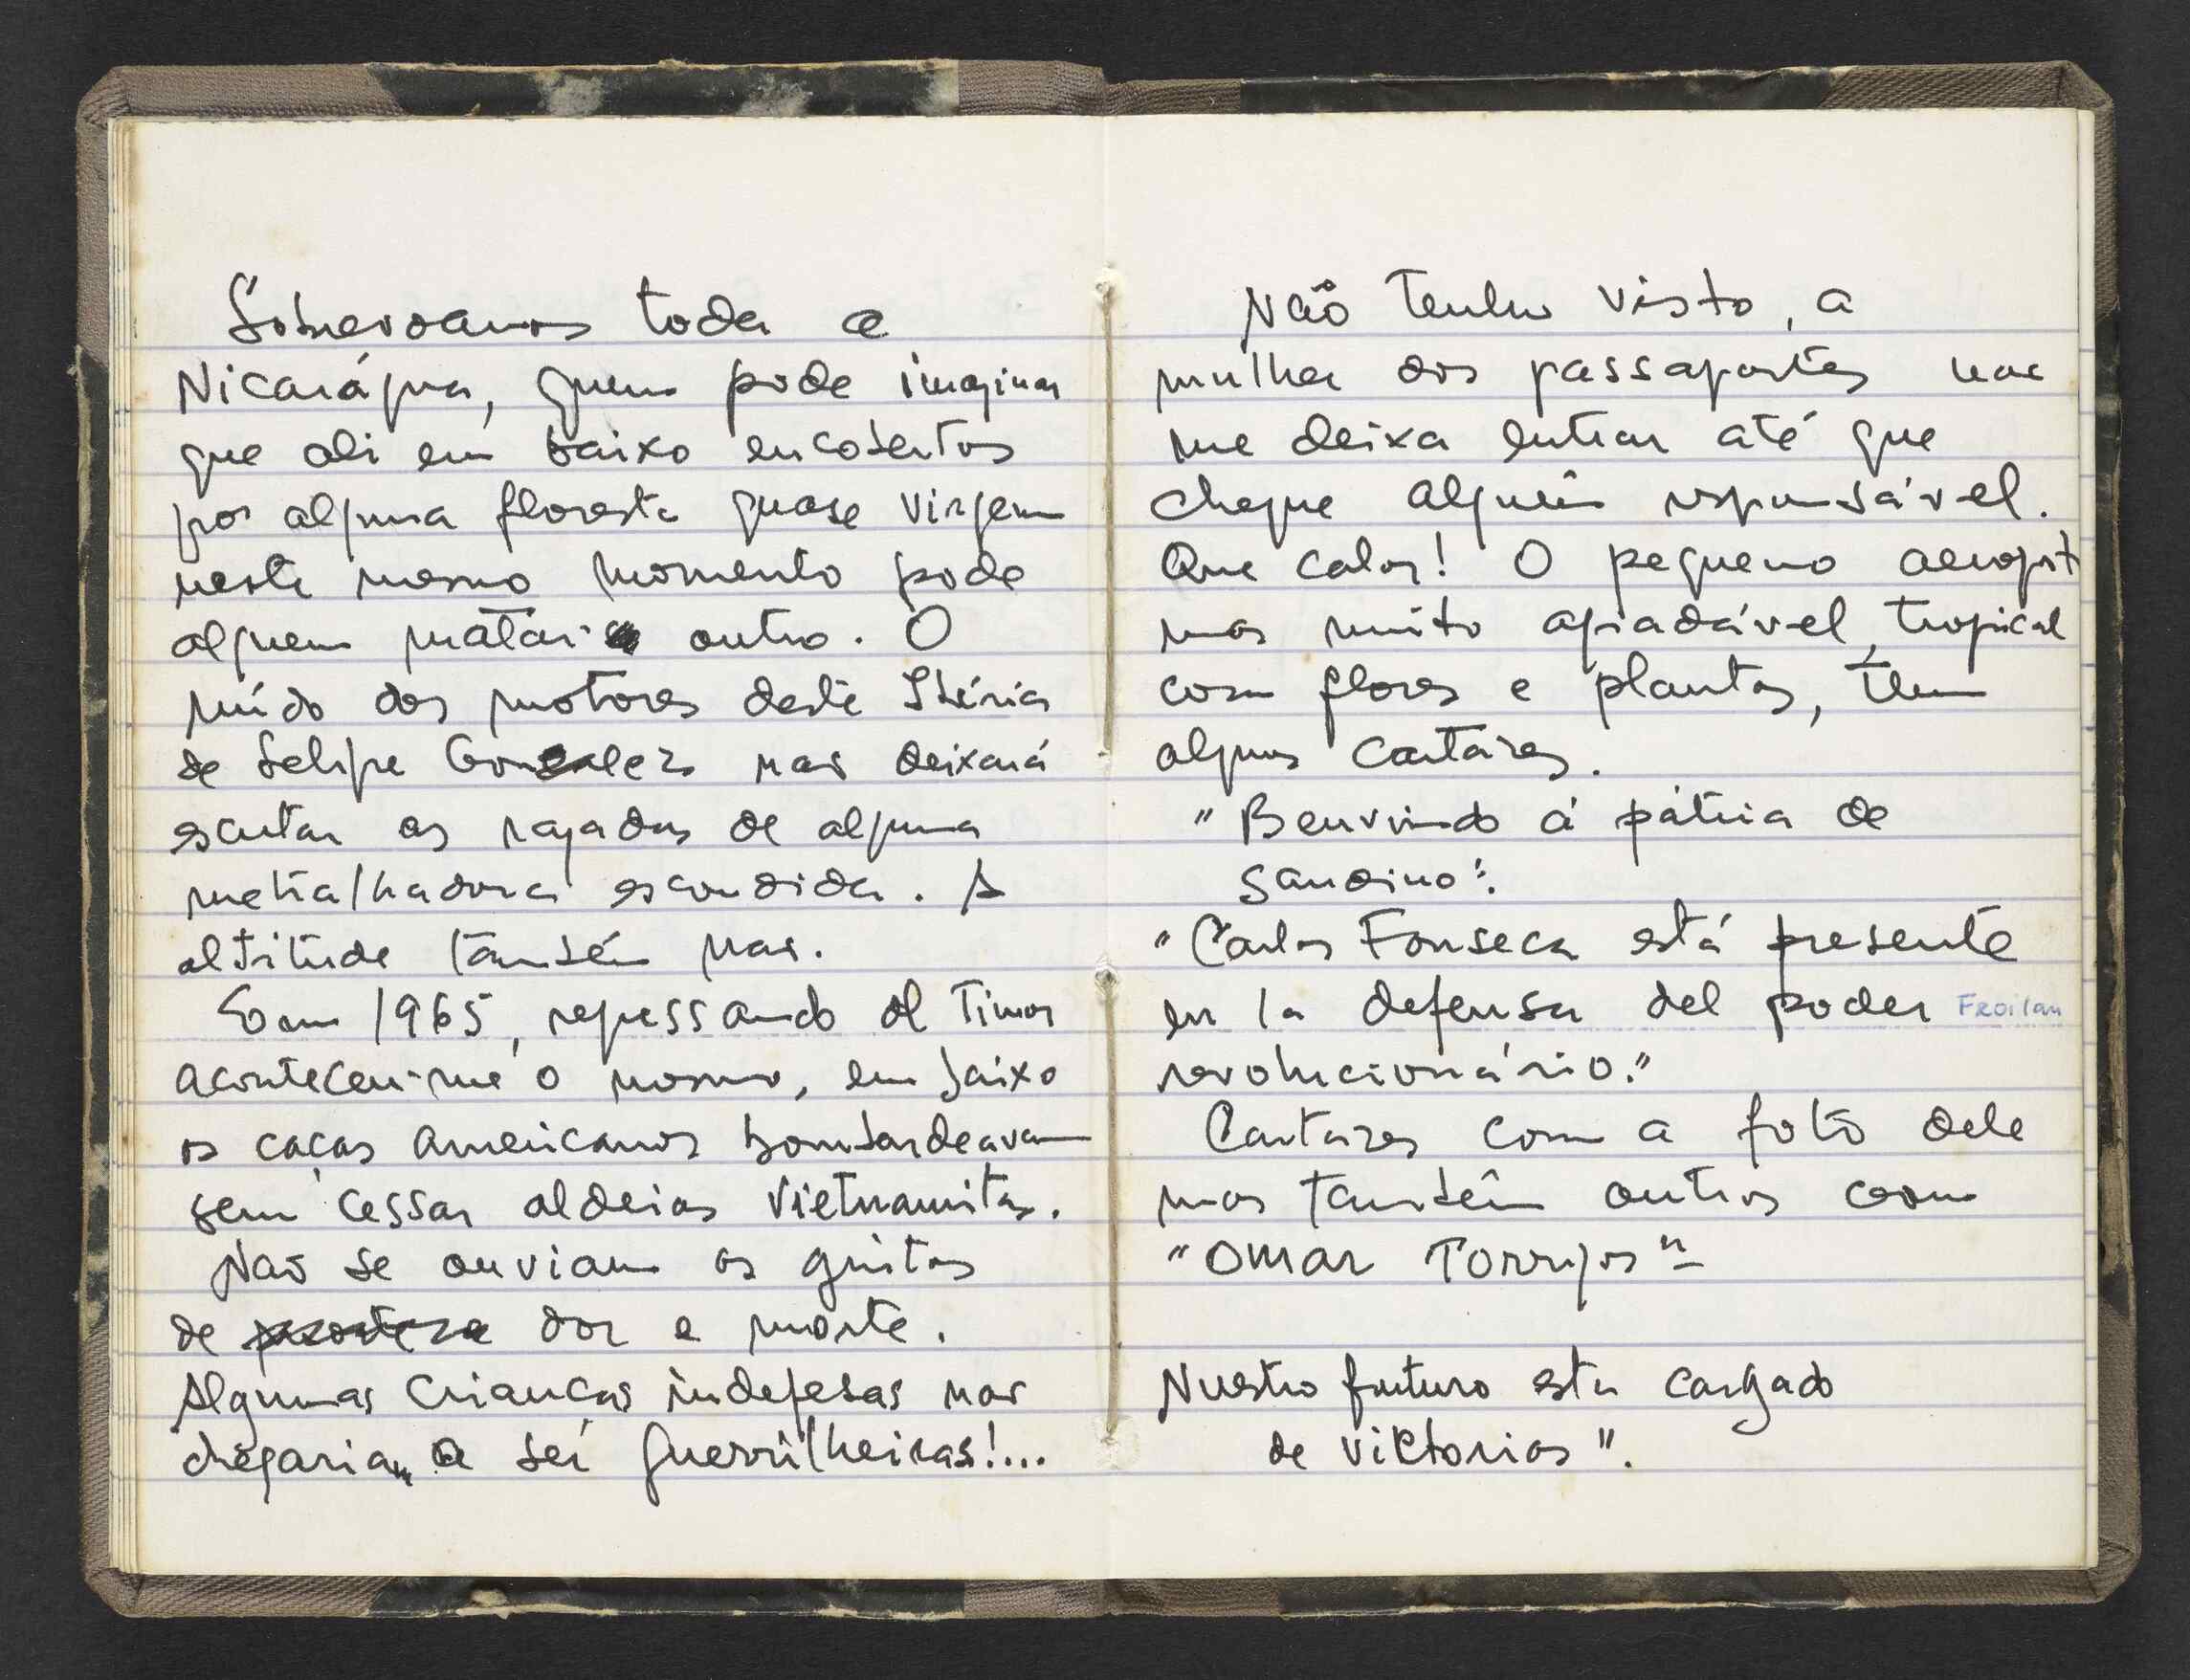 Sobrevoamos toda a
Nicarágua, quem pode imaginar
que ali em baixo encobertos
por alguma floresta quase virgem
neste mesmo momento pode
alguem matar a outro. O
ruído dos motores deste Ibéria
de Felipe Gonzalez nao deixará
escutar as rajadas de alguma
metralhadora escondida. A
altitude também nao.
Em 1965, regressando de Timor
aconteceu-me o mesmo, em baixo
os caças americanos bombardeavam
sem cessar aldeias vietnamitas.
Nao se ouviam os gritos
de dor e morte.
Algumas crianças indefesas nao
chegariam a ser guerrilheiras!...
Não tenho visto, a
mulher dos passaportes nao
me deixa entrar até que
chegue alguém responsável.
Que calor! O pequeno aeroport
mas muito agradável, tropical
com flores e plantas, tem
alguns cartazes.
"Benvindo á pátria de
Sandino".
"Carlos Fonseca está presente
en la defensa del poder Froilan
revolucionário."
Cartazes com a foto dele
mas também outros com
"Omar Torrijos"
Nuestro futuro esta cargado
de viktorias".